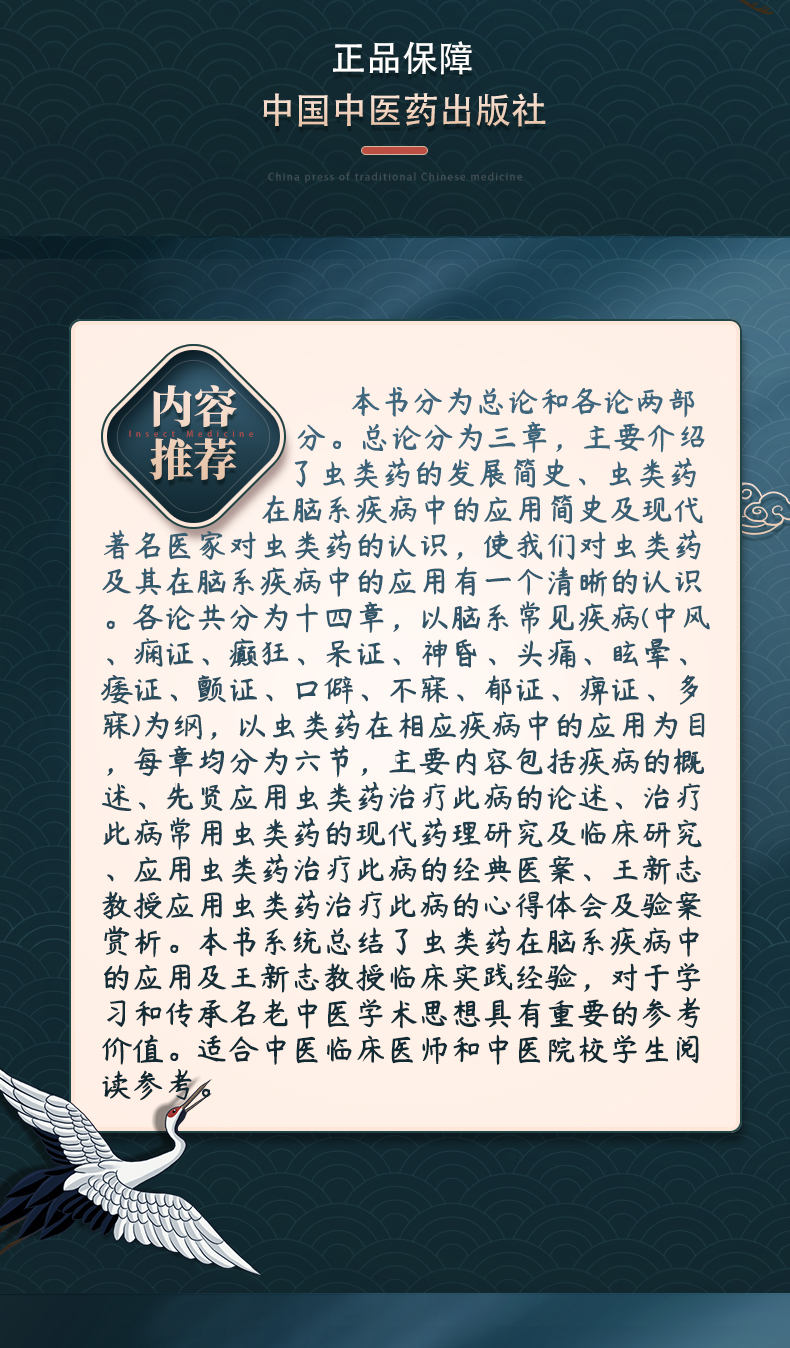 正品保障
中国中医药出版社
China press of traditional Chinese medicine
内容
Insect Medicine
推荐
本书分为总论和各论两部
分。总论分为三章，主要介绍
了虫类药的发展简史、虫类药
在脑系疾病中的应用简史及现代
著名医家对虫类药的认识，使我们对虫类药
及其在脑系疾病中的应用有一个清晰的认识
。各论共分为十四章，以脑系常见疾病(中风
、痫证、癫狂、呆证、神昏、头痛、眩晕、
痿证、颤证、口僻、不寐、郁证、痹证、多
寐)为纲，以虫类药在相应疾病中的应用为目
，每章均分为六节，主要内容包括疾病的概
述、先贤应用虫类药治疗此病的论述、治疗
此病常用虫类药的现代药理研究及临床研究
、应用虫类药治疗此病的经典医案、王新志
教授应用虫类药治疗此病的心得体会及验案
赏析。本书系统总结了虫类药在脑系疾病中
的应用及王新志教授临床实践经验，对于学
习和传承名老中医学术思想具有重要的参考
价值。适合中医临床医师和中医院校学生阅
读参考。